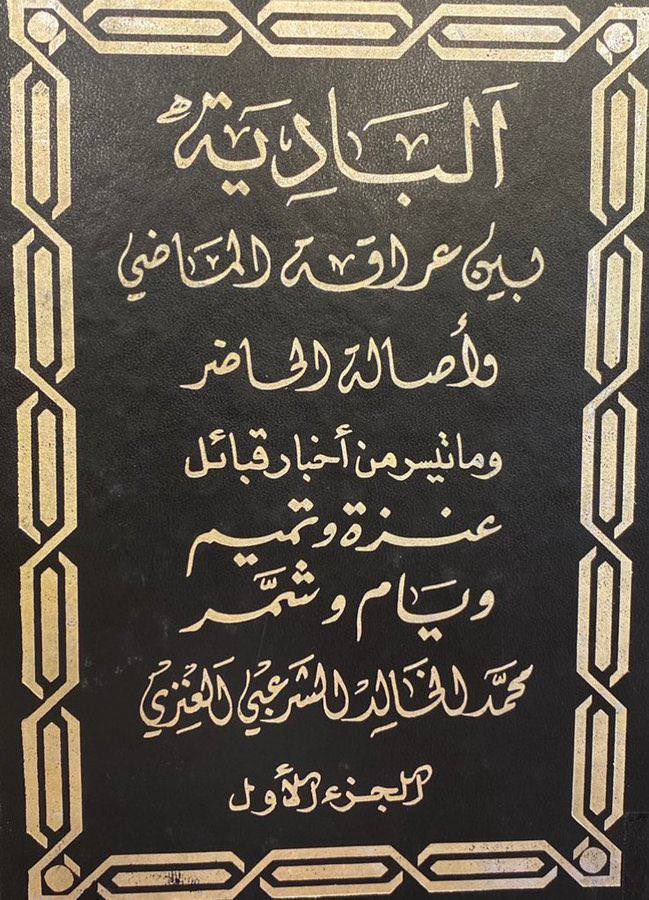 اَلبَادِيَة
بين عراقة المَاضي
وأصالة الحاضر
وماتيسر من أخبار قبائل
عنزة وتميم
ويَام وشمَّر
محمَّد الخَالِد الشَرعَبي العَنِزي
الجزء الأول